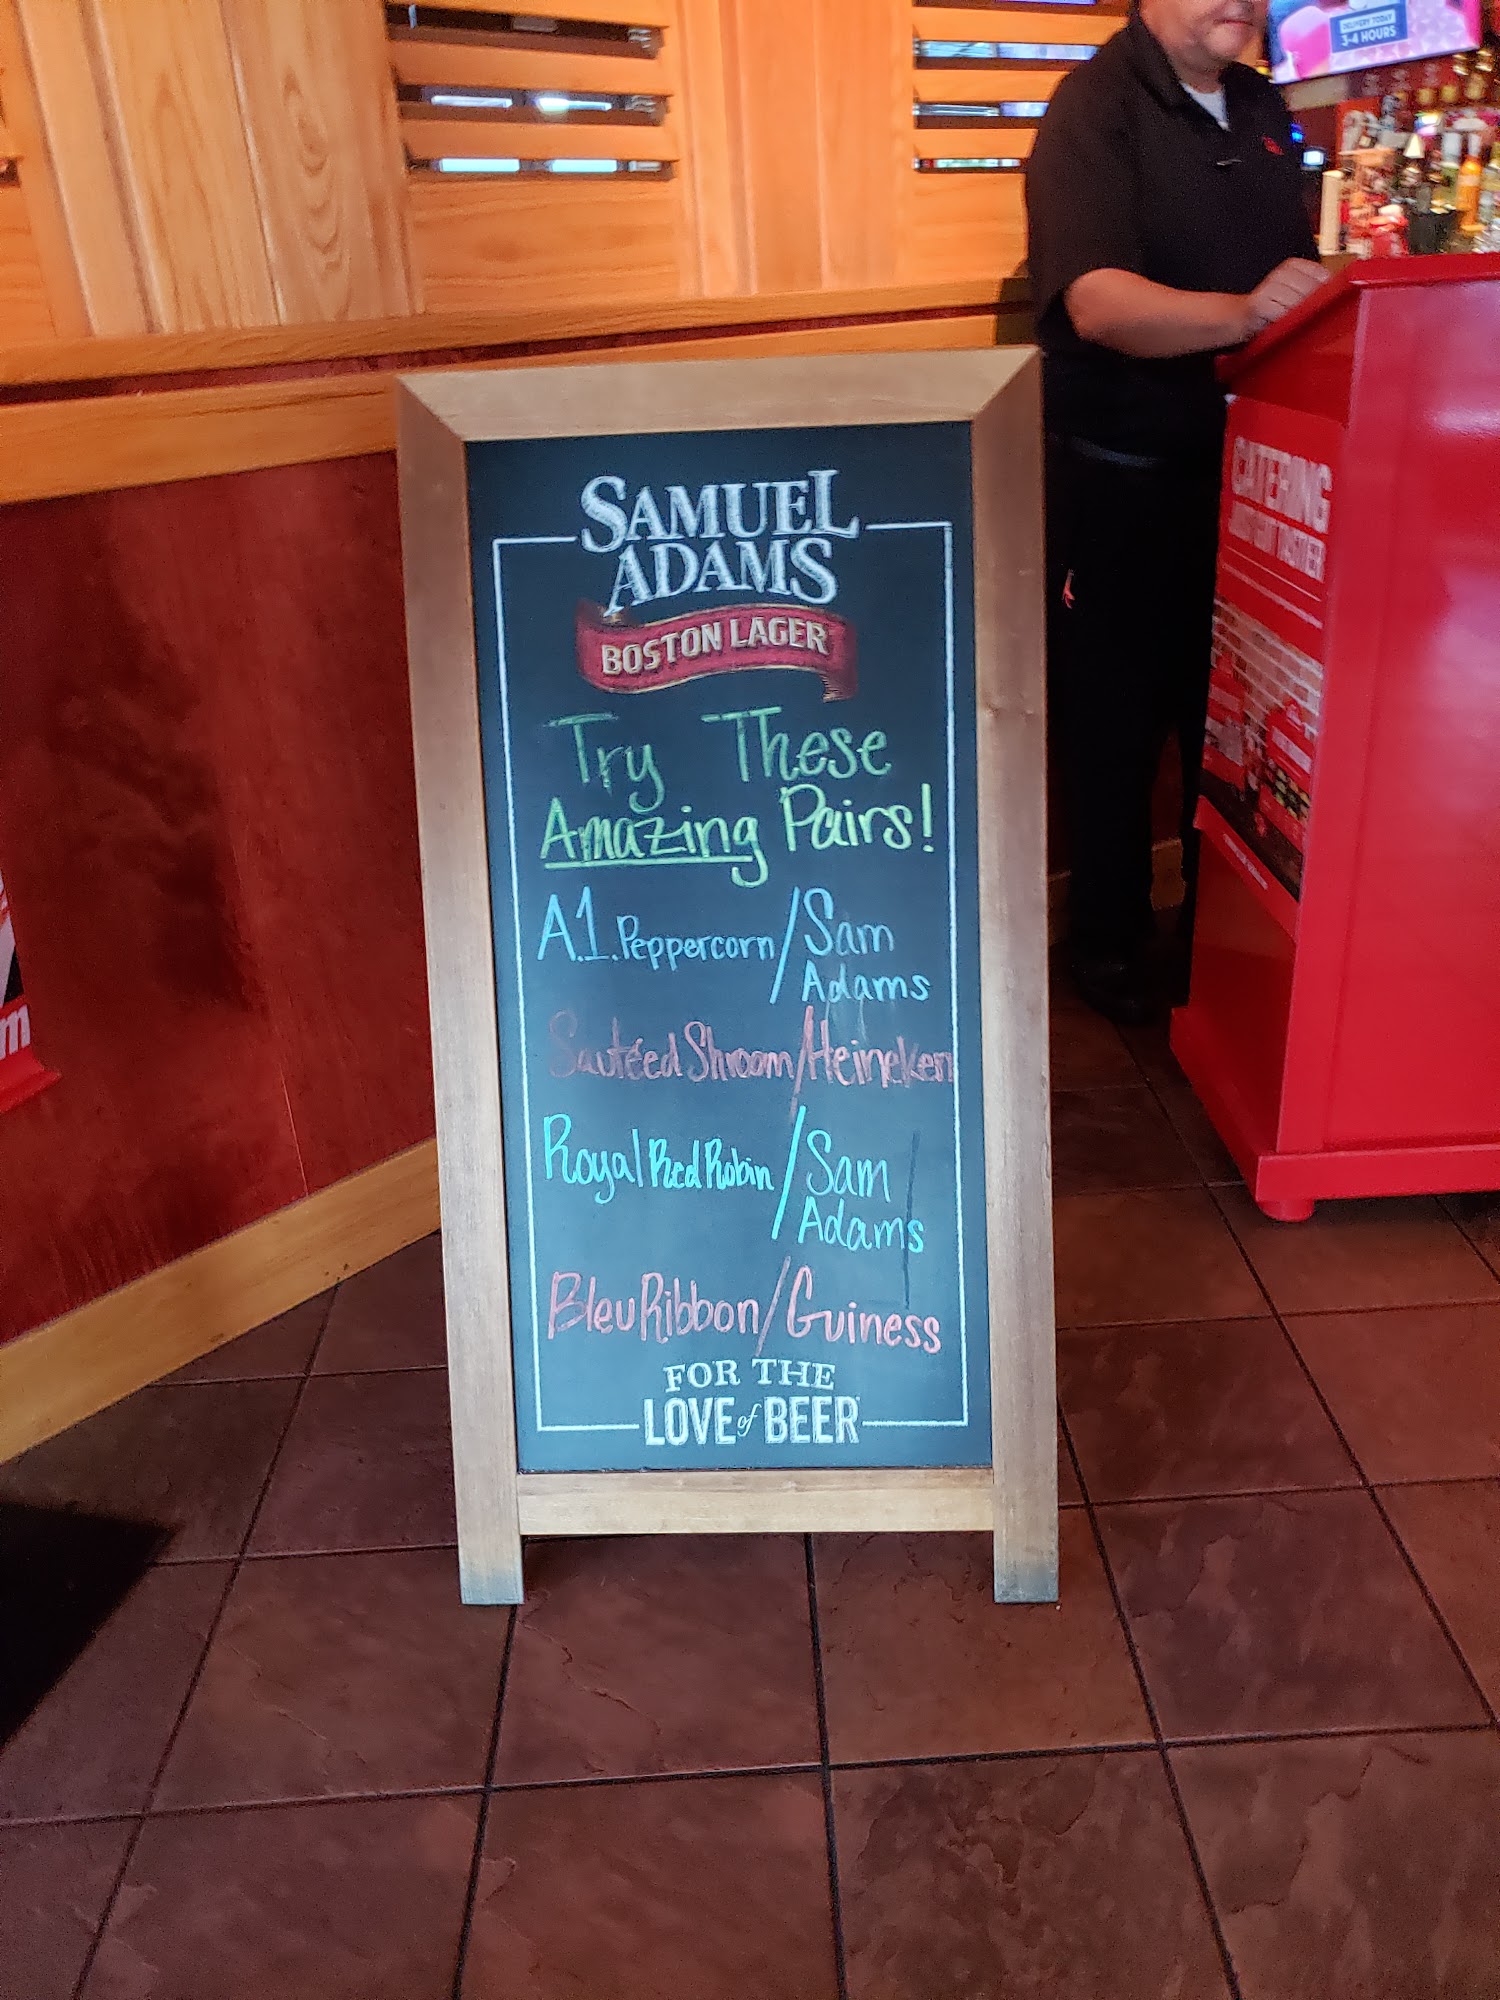 DELIVERY TODAY
3-4 HOURS
SAMUEL
ADAMS
BOSTON LAGER
Try These
Amazing Pairs!
A.1. Peppercorn/Sam
Adams
Sautéed Shroom/Heineken
Royal Red Robin/Sam
Adams
Bleu Ribbon/Guiness
FOR THE
LOVE of BEER
CATERING
m